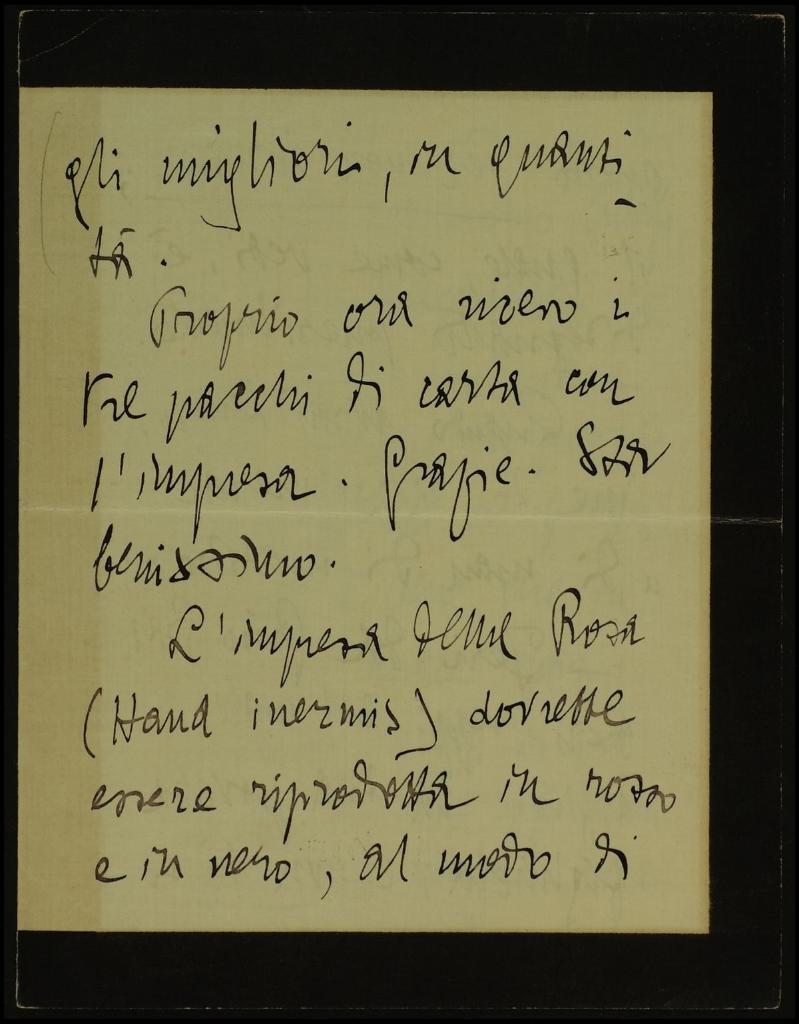 gli migliori, in quanti
tà.
Proprio ora ricevo i
tre pacchi di carta con
l'impresa. Grazie. Sta
benissimo.
L'impresa delle Rosa
(Haud inermis) dovrebbe
essere riprodotta in rosso
e in nero, al modo di